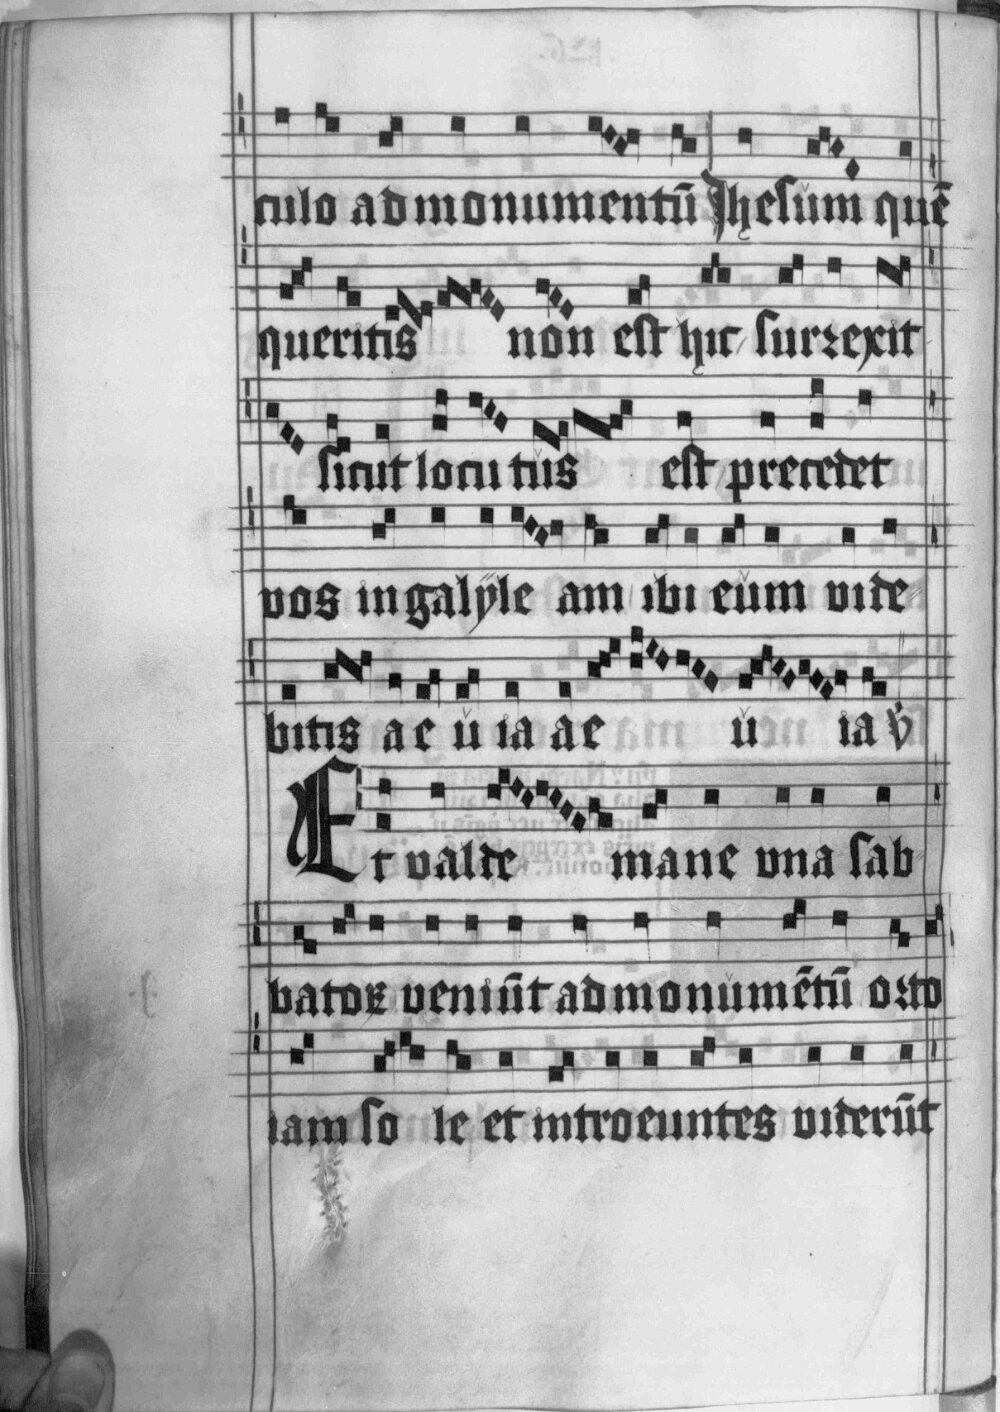 culo ad monumentū Jhesum quē
queritis non est hic surrexit
sicut locutus est precedet
vos in galyleam ibi eum vide
bitis aeuia aeuia ꝟ
Et valde mane vna sab
batoꝝ veniūt ad monumētū orto
iam sole et introeuntes viderūt